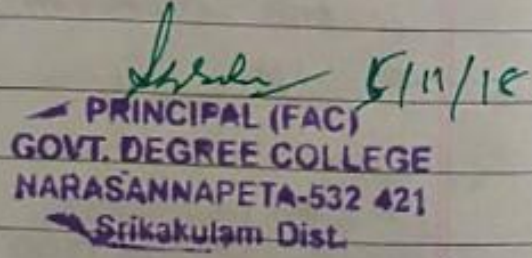 PRINCIPAL (FAC)
GOVT. DEGREE COLLEGE
NARASANNAPETA-532 421
Srikakulam Dist.